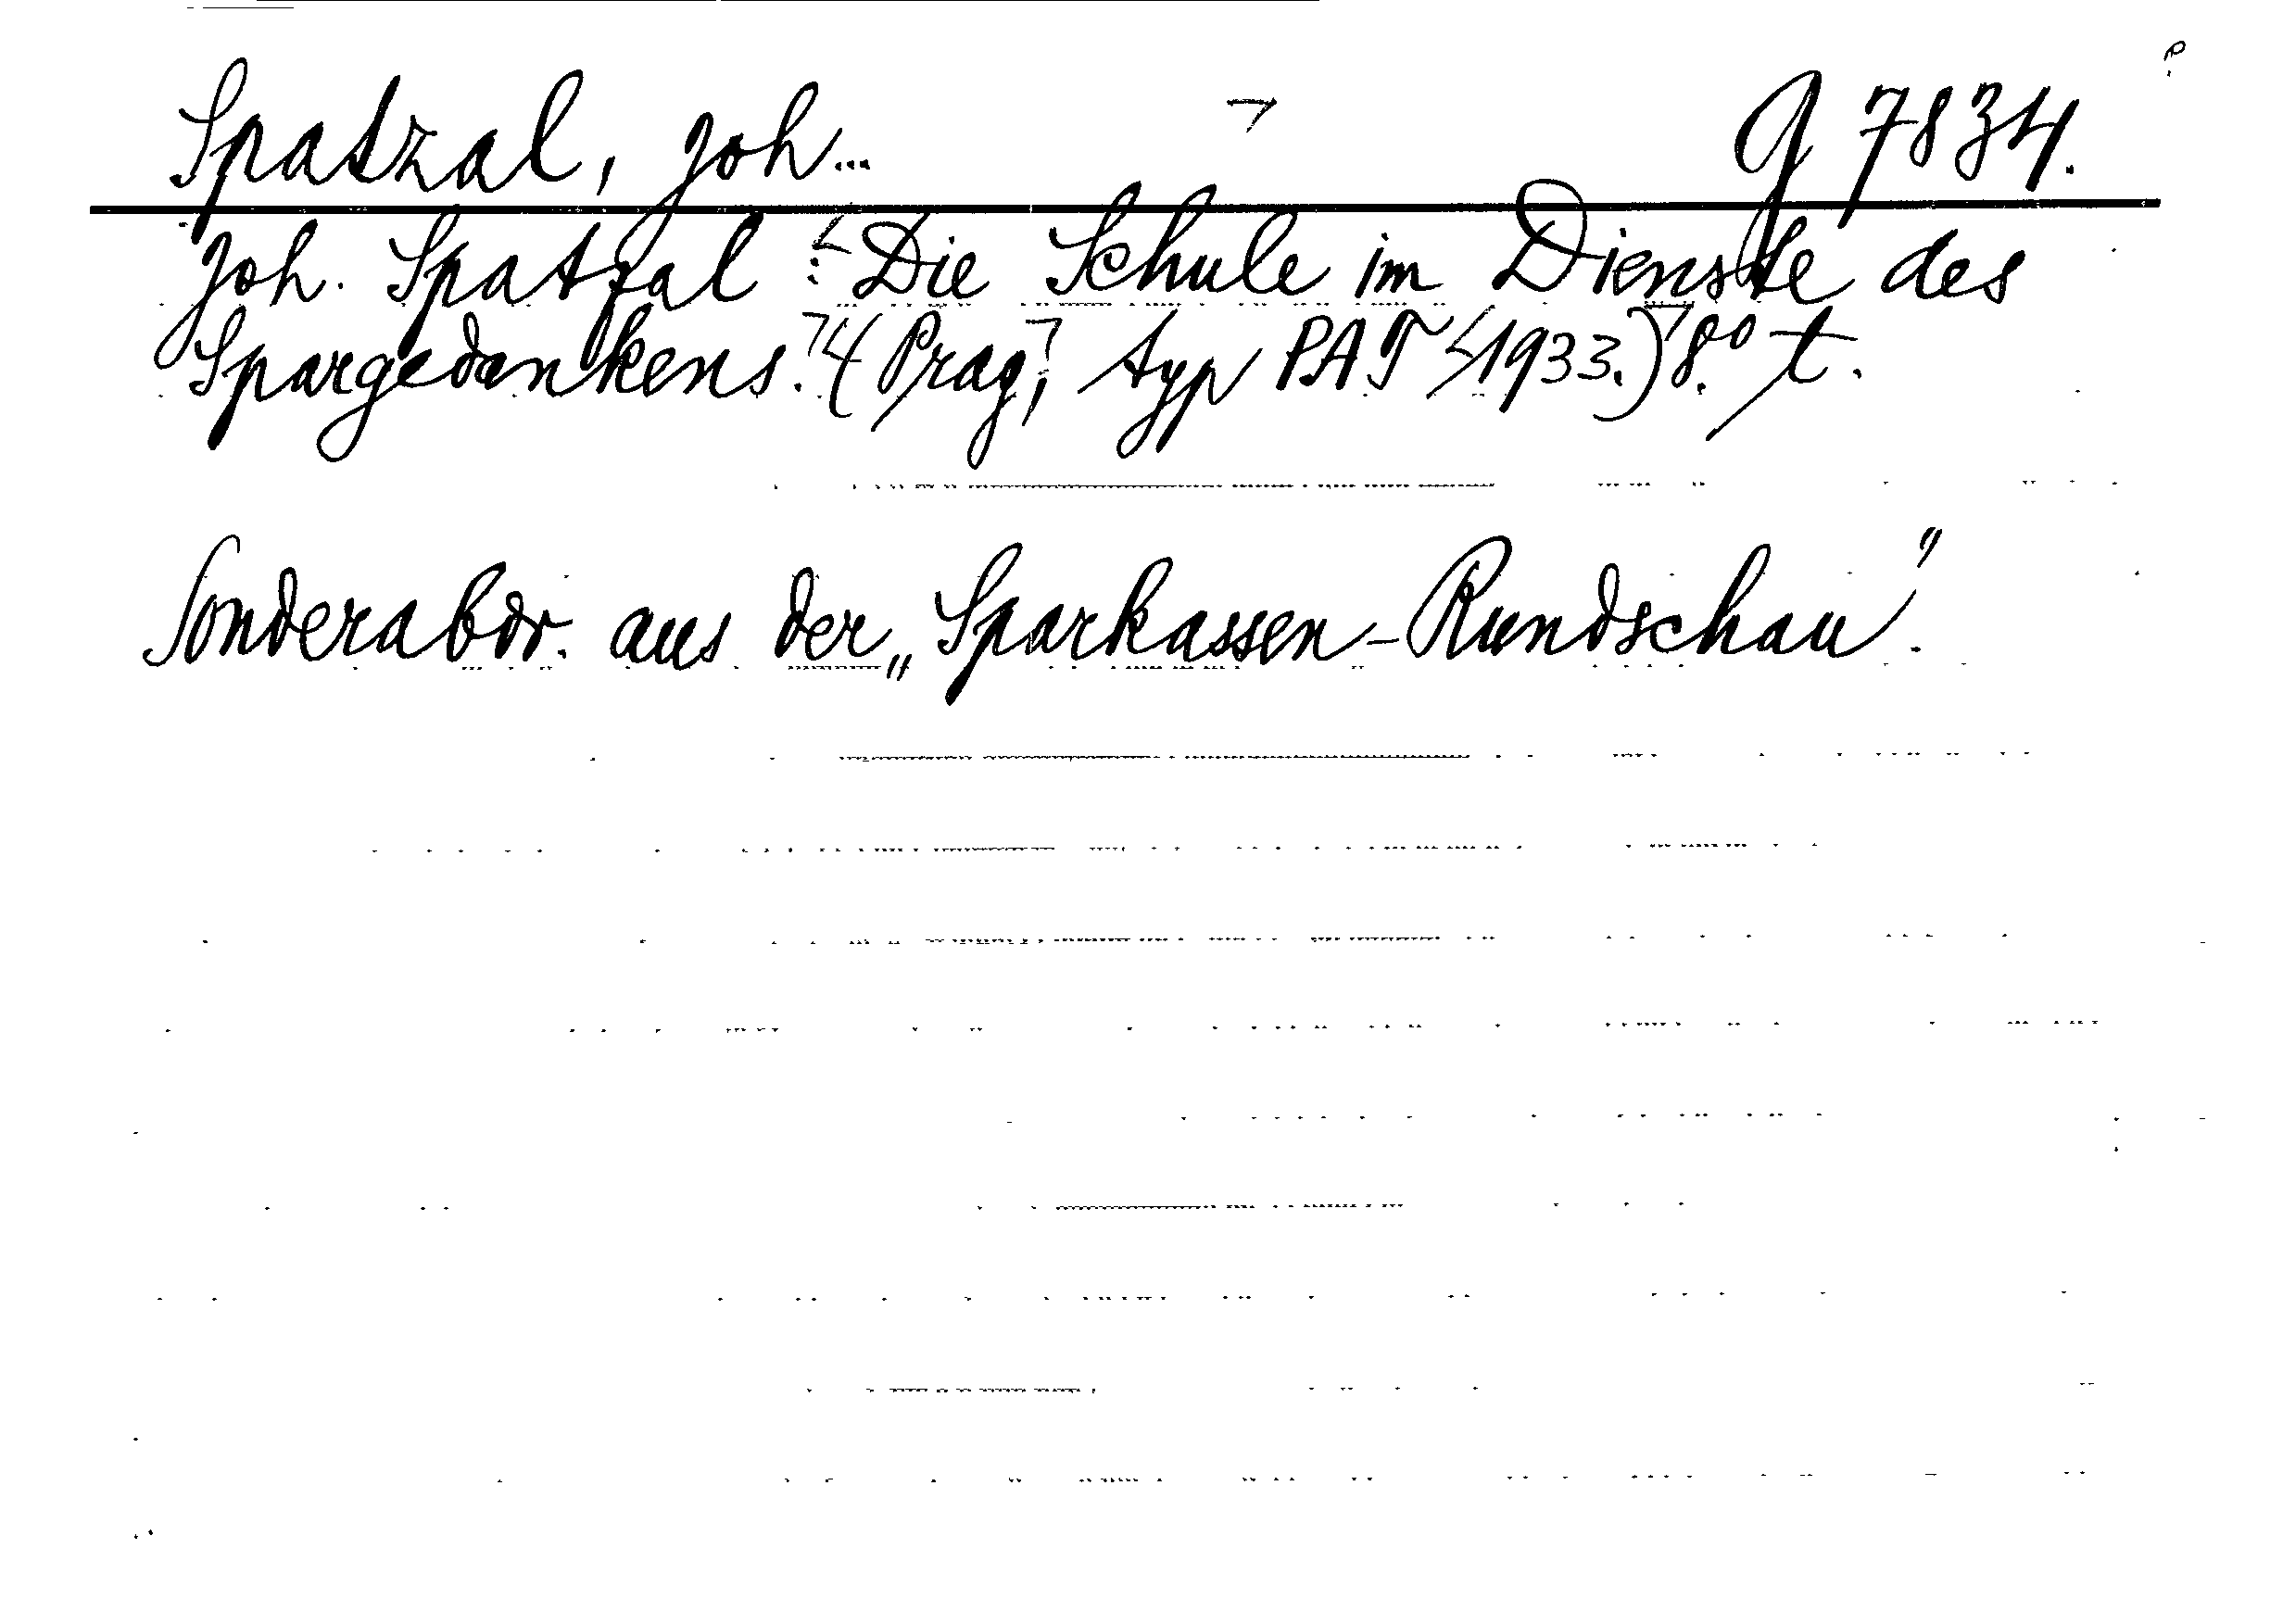 Spatzal, Joh... g 7834.
Joh. Spatzal: Die Schule im Dienste des
Spargedankens. (Prag, typ PAT 1933.) 8.° t.
Sonderabdr. aus der „Sparkassen-Rundschau".